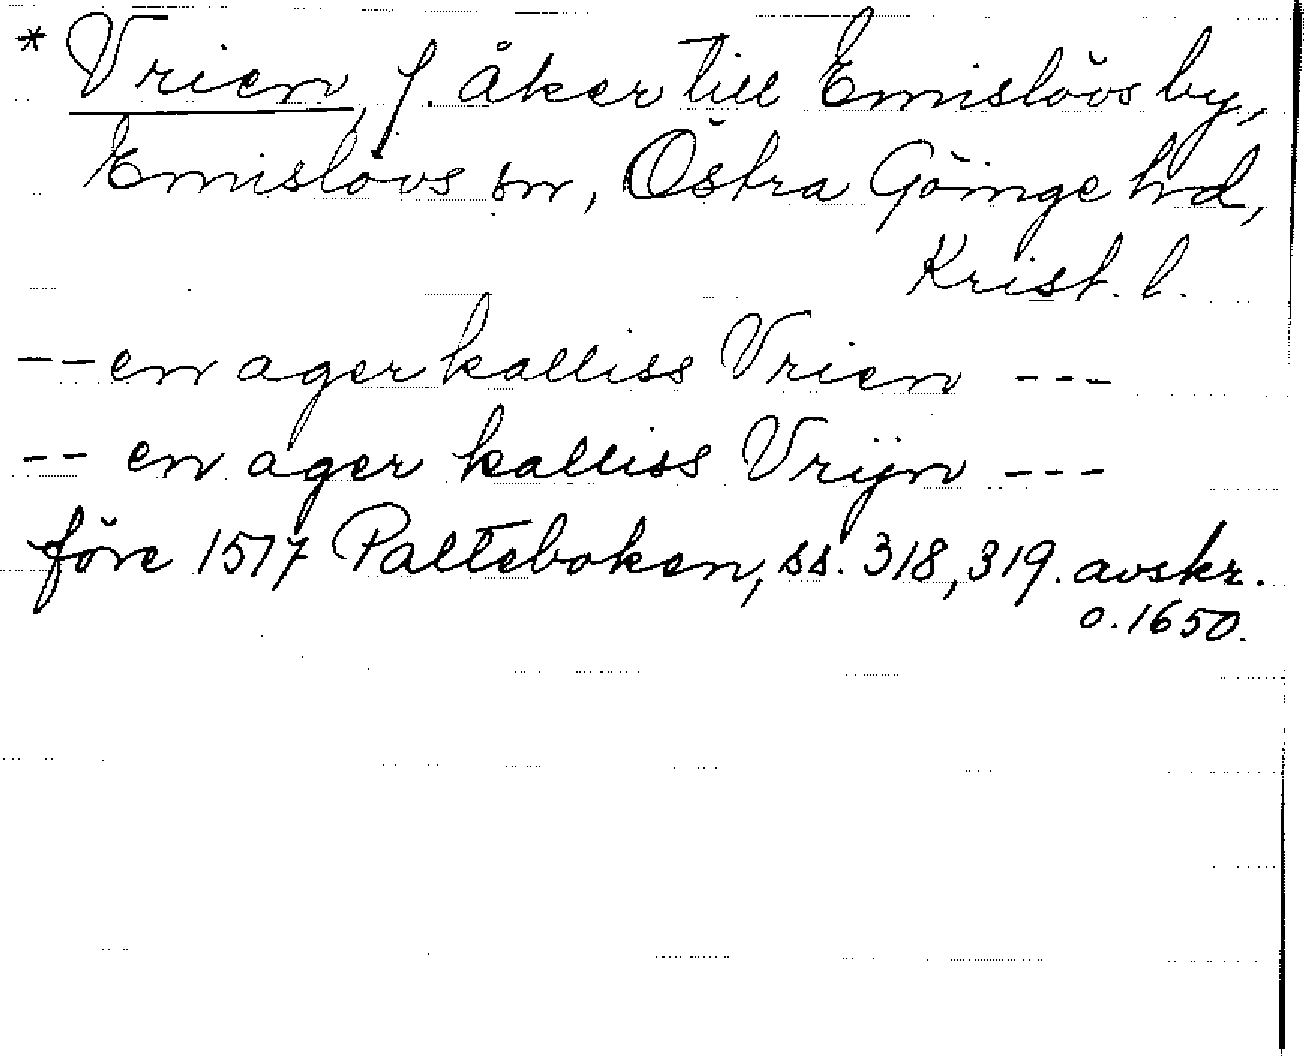 * Vrien, f. åker till Emislövs by,
Emislövs sn, Östra Göinge hd,
Krist. l.
-- en ager kalliss Vrien ---
-- en ager kalliss Vrijn ---
före 1517 Palteboken, ss. 318, 319. avskr.
o. 1650.